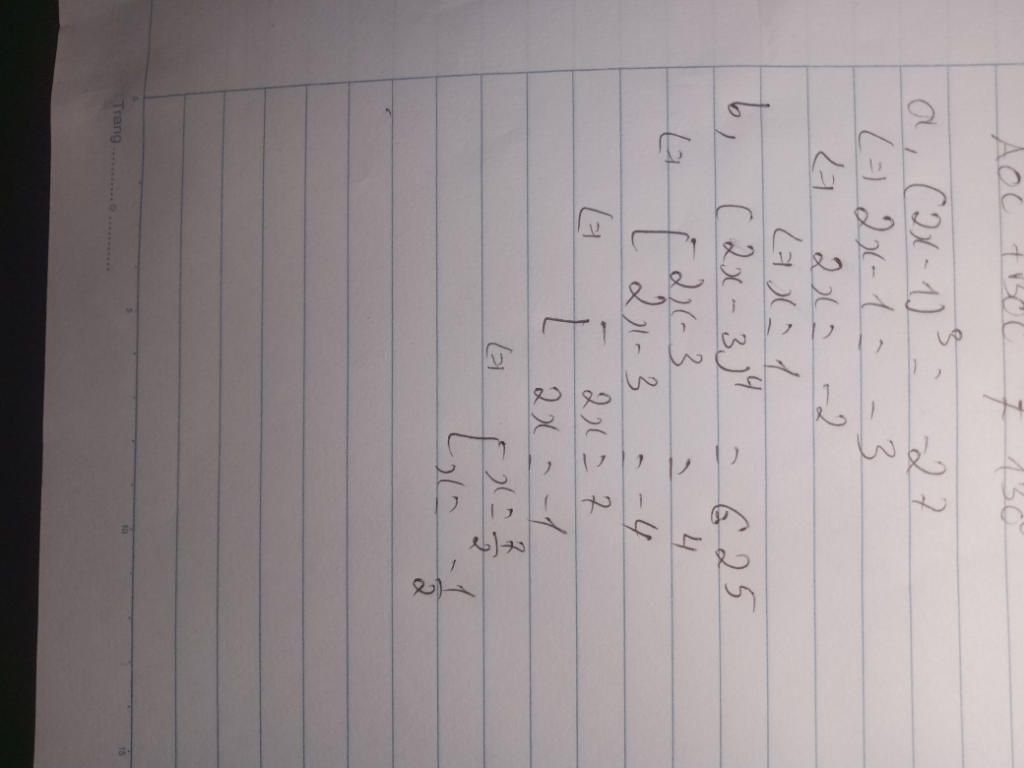 a, (2x - 1)³ = -27
<=> 2x - 1 = -3
<=> 2x = -2
<=> x = 1
b, (2x - 3)⁴ = 625
<=> [ 2x - 3 = 4
[ 2x - 3 = -4
<=> [ 2x = 7
[ 2x = -1
<=> [ x = 7/2
[ x = -1/2
Trang